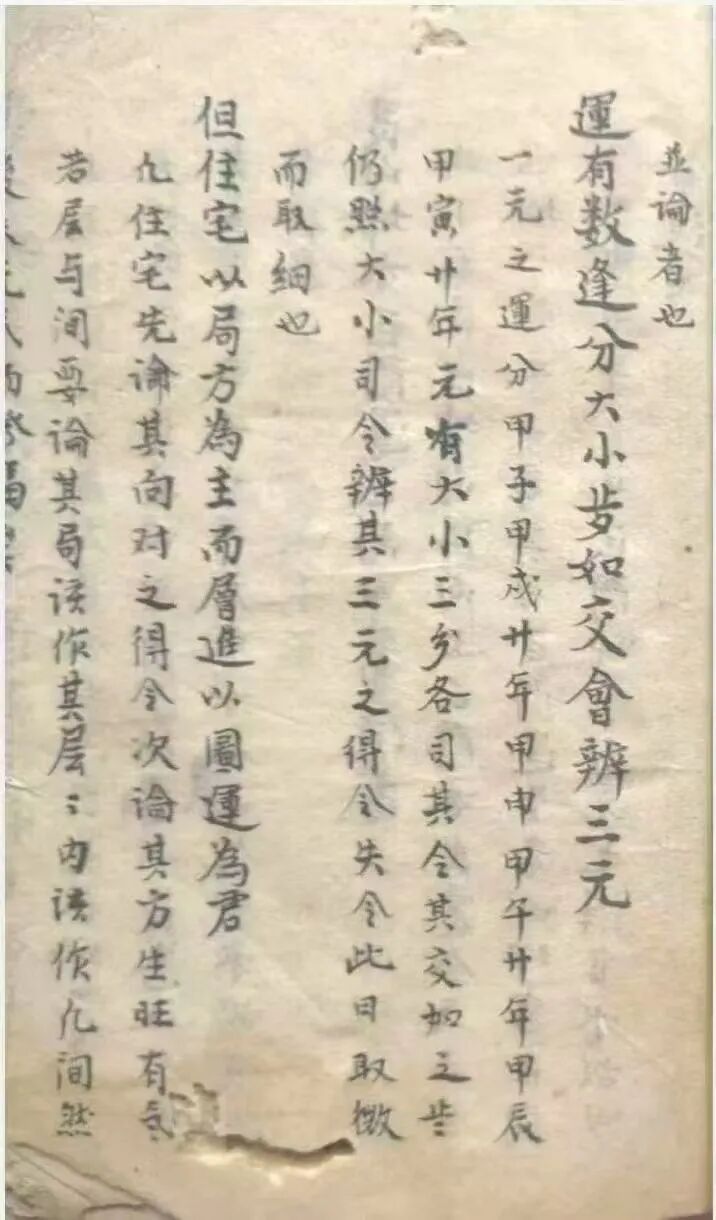 並論者也
運有数逢分大小步如交會辨三元
一元之運分甲子甲戍廿年甲申甲午廿年甲辰
甲寅廿年元有大小三岁各司其令其交如之些
仍照大小司令辨其三元之得令失令此日取微
而取細也
但住宅以局方為主而層進以圖運為君
凢住宅先論其向对之得令次論其方生旺有気
若层与间要論其局该作其层〻内该作凢间然